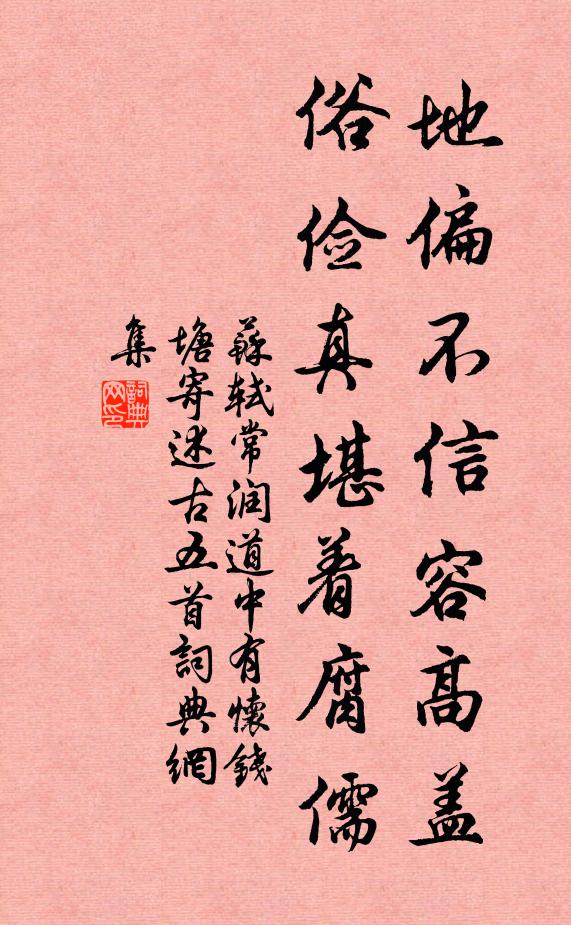 地偏不信容高盖
俗俭真堪着腐儒
蘇軾常润道中有懷錢
塘寄述古五首詞典網
集
詞典
网印